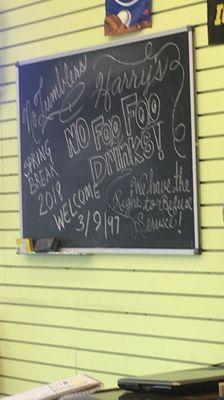 No Tumblers
Harry's
NO FOO FOO
DRINKS!
SPRING
BREAK
2019
WELCOME
3/9/97
We have the
Right to Refuse
Service!